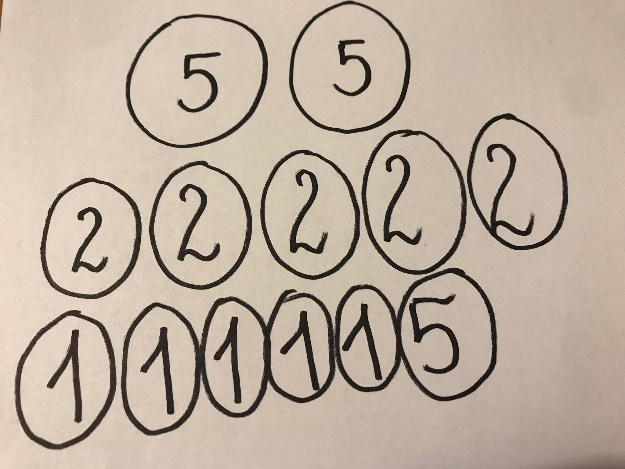 5 5
2 2 2 2 2
1 1 1 1 1 5